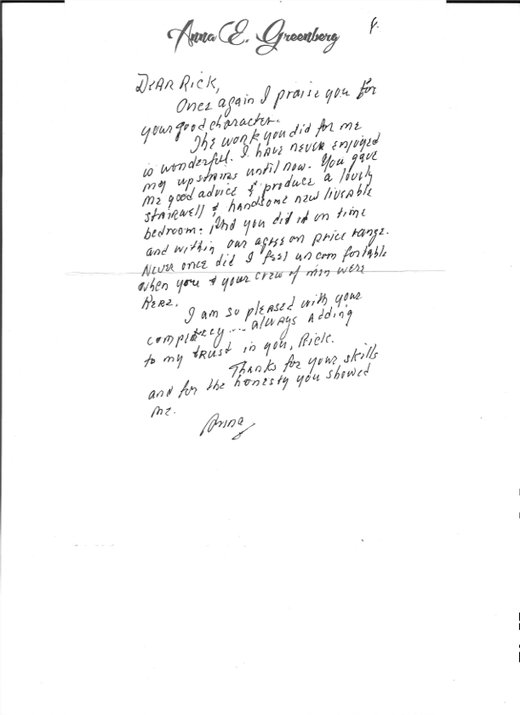 Anna E. Greenberg
Dear Rick,
Once again I praise you for
your good character.
The work you did for me
is wonderful. I have never enjoyed
my upstairs until now. You gave
me good advice & produce a lovely
stairwell & handsome new liveable
bedroom. And you did it on time
and within our agree on price range.
Never once did I feel uncomfortable
when you & your crew of men were
here.
I am so pleased with your
... always adding
to my trust in you, Rick.
Thanks for your skills
and for the honesty you showed
me.
Anna